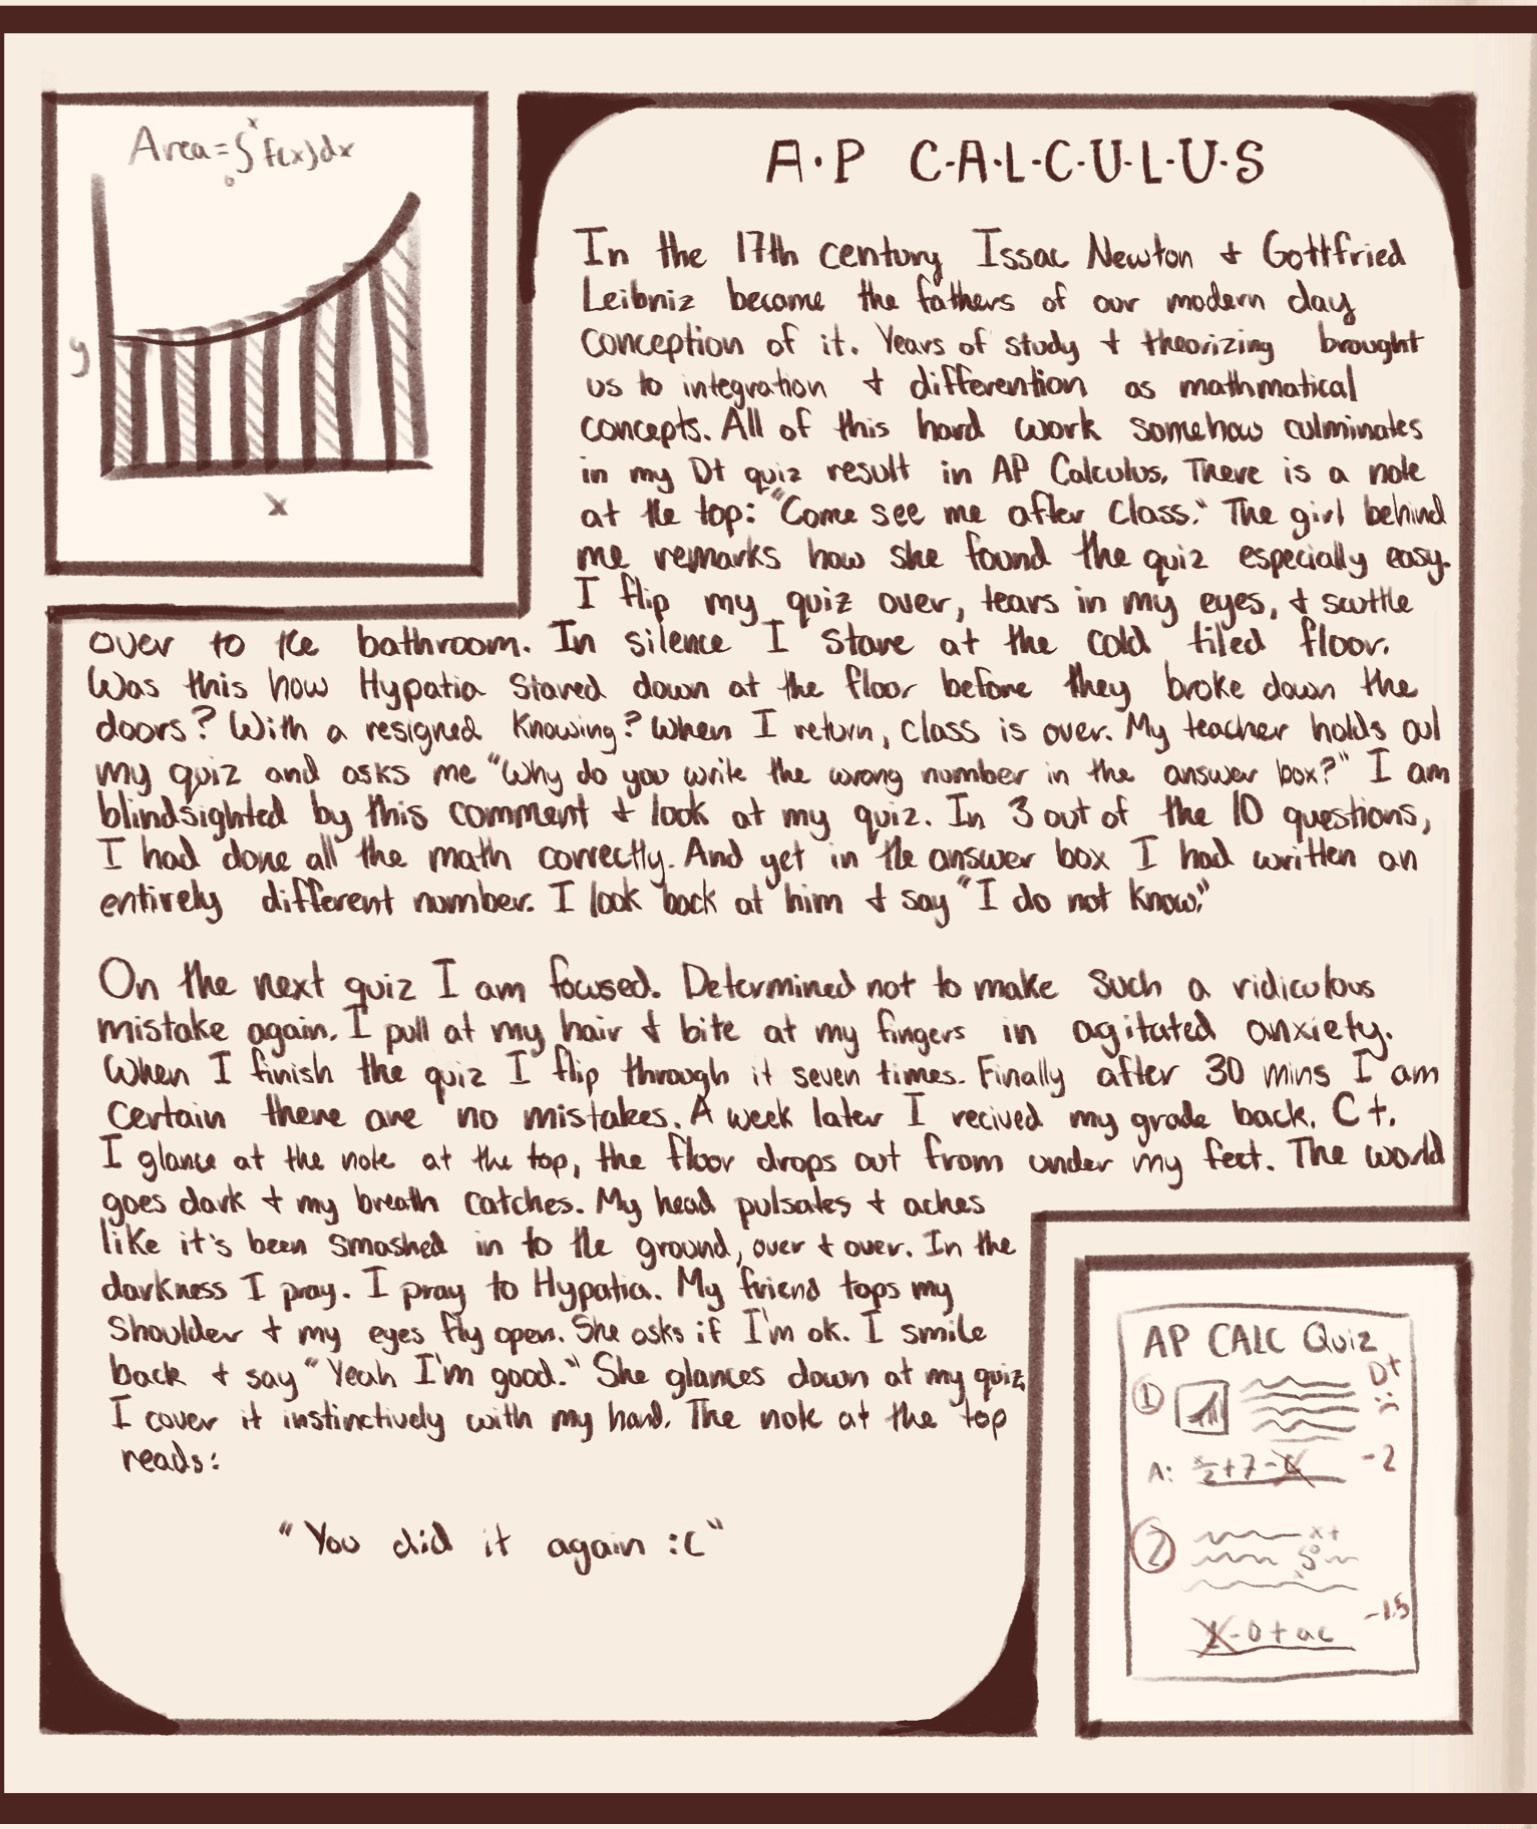 Area = ∫₀ˣ f(x)dx
y
x
A·P C·A·L·C·U·L·U·S
In the 17th century Issac Newton + Gottfried
Leibniz became the fathers of our modern day
conception of it. Years of study + theorizing brought
us to integration + differention as mathmatical
concepts. All of this hard work somehow culminates
in my D+ quiz result in AP Calculus. There is a note
at the top: "Come see me after class." The girl behind
me remarks how she found the quiz especially easy.
I flip my quiz over, tears in my eyes, + scuttle
over to the bathroom. In silence I stare at the cold tiled floor.
Was this how Hypatia stared down at the floor before they broke down the
doors? With a resigned knowing? When I return, class is over. My teacher holds out
my quiz and asks me "Why do you write the wrong number in the answer box?" I am
blindsighted by this comment + look at my quiz. In 3 out of the 10 questions,
I had done all the math correctly. And yet in the answer box I had written an
entirely different number. I look back at him + say "I do not know."
On the next quiz I am focused. Determined not to make such a ridiculous
mistake again. I pull at my hair + bite at my fingers in agitated anxiety.
When I finish the quiz I flip through it seven times. Finally after 30 mins I am
certain there are no mistakes. A week later I recived my grade back. C+.
I glance at the note at the top, the floor drops out from under my feet. The world
goes dark + my breath catches. My head pulsates + aches
like it's been smashed in to the ground, over + over. In the
darkness I pray. I pray to Hypatia. My friend taps my
shoulder + my eyes fly open. She asks if I'm ok. I smile
back + say "Yeah I'm good." She glances down at my quiz,
I cover it instinctively with my hand. The note at the top
reads:
"You did it again :("
AP CALC Quiz
D+
:(
1
A: x/2 + 7 -
-2
2
x+
-1.5
-0+ac